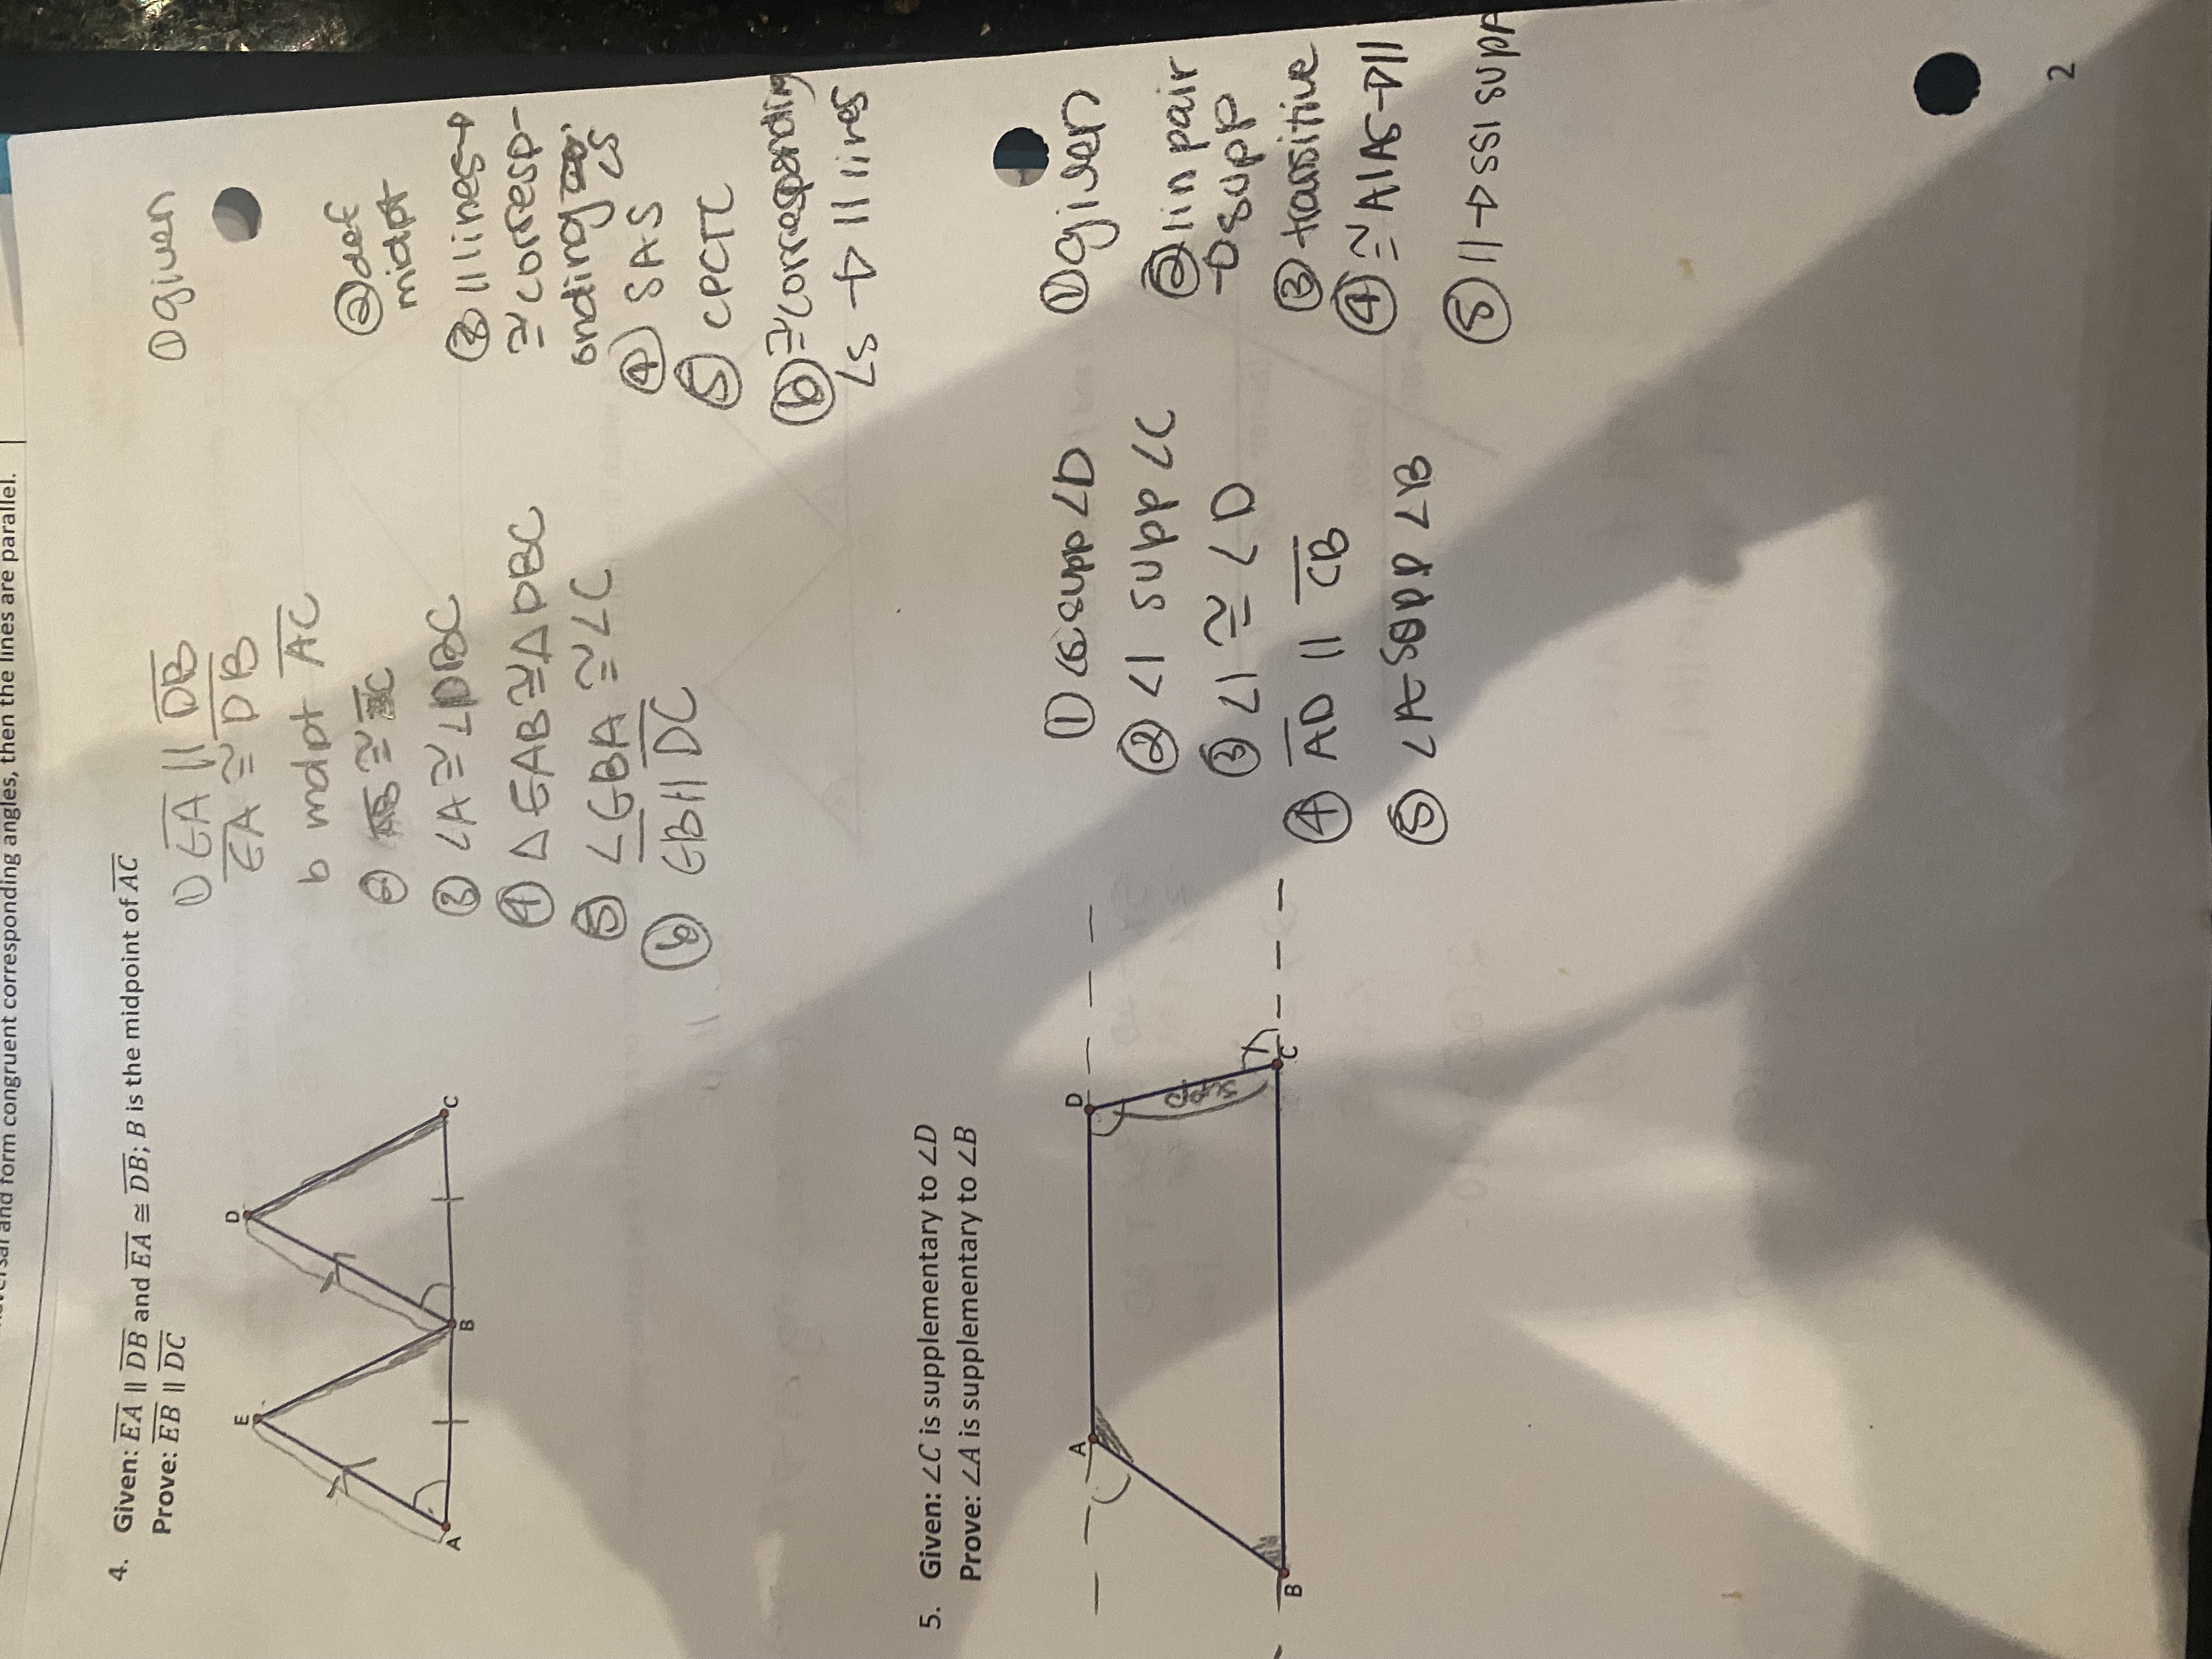 and form congruent corresponding angles, then the lines are parallel.
4. Given: EA ∥ DB and EA ≅ DB; B is the midpoint of AC
Prove: EB ∥ DC
E
D
A
B
C
① EA ∥ DB
EA ≅ DB
b mdpt AC
② AB ≅ BC
③ ∠A ≅ ∠DBC
④ △EAB ≅ △DBC
⑤ ∠EBA ≅ ∠C
⑥ EB ∥ DC
① given
② def
midpt
③ ∥ lines →
≅ corresp-
onding
∠s
④ SAS
⑤ CPCTC
⑥ ≅ corresponding
∠s → ∥ lines
5. Given: ∠C is supplementary to ∠D
Prove: ∠A is supplementary to ∠B
A
D
supp
1
B
C
① ∠C supp ∠D
② ∠1 supp ∠C
③ ∠1 ≅ ∠D
④ AD ∥ CB
⑤ ∠A supp ∠B
① given
② lin pair
→ supp
③ transitive
④ ≅ AIAS → ∥
⑤ ∥ → SSI supp
2